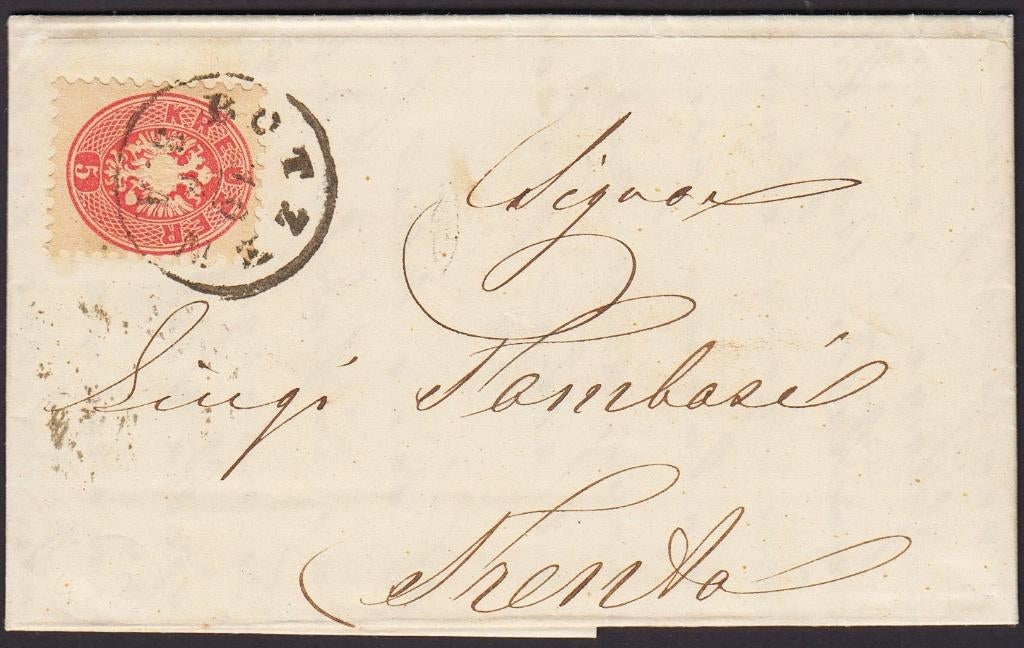 KREUZER
5
BOTZEN
Signor
Luigi Tambosi
Trento